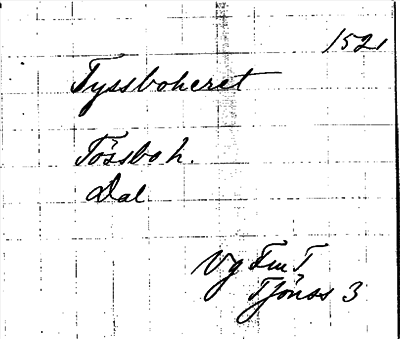 1521
Tyssboheret
Tössboh.
Dal.
Vg Fm T
Tjönss 3